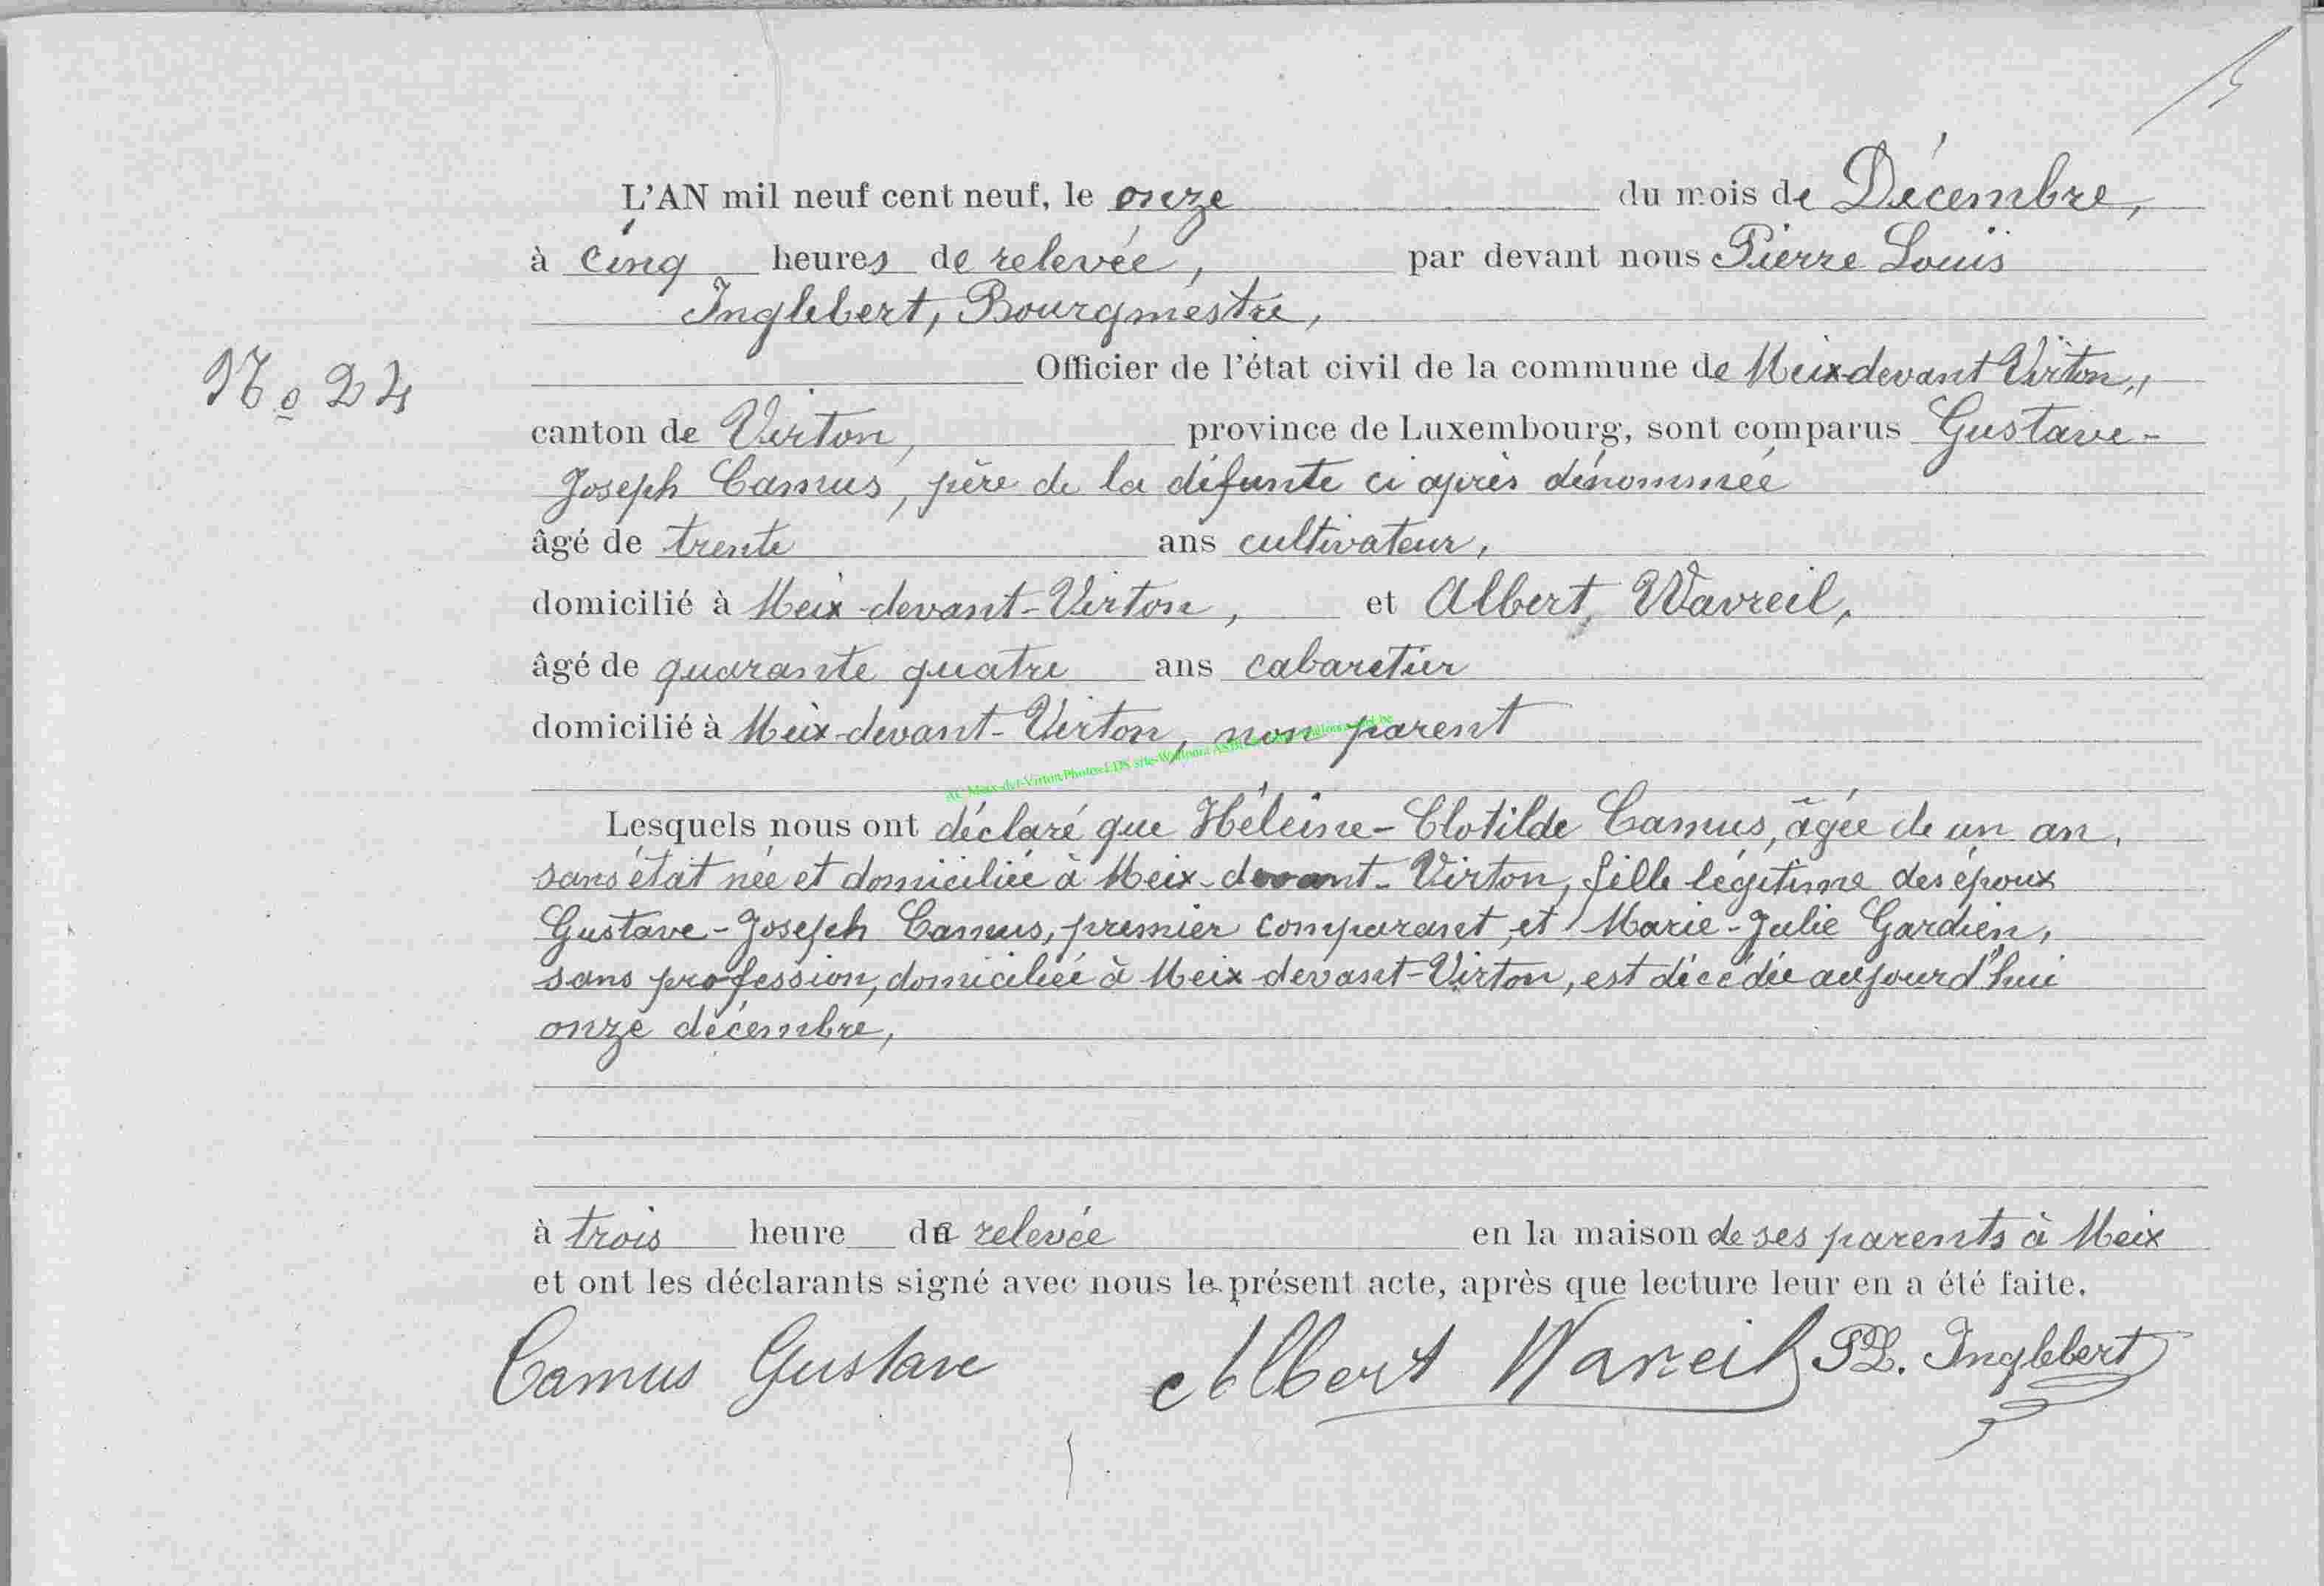 L'AN mil neuf cent neuf, le onze du mois de Décembre,
à cinq heures de relevée, par devant nous Pierre Louis
Inglebert, Bourgmestre,
Officier de l'état civil de la commune de Meix-devant Virton,
N° 24
canton de Virton, province de Luxembourg, sont comparus Gustave-
Joseph Camus, père de la défunte ci après dénommée
âgé de trente ans cultivateur,
domicilié à Meix-devant-Virton, et Albert, Wavreil,
âgé de quarante quatre ans cabaretier
domicilié à Meix-devant-Virton, non parent
Lesquels nous ont déclaré que Héleine-Clotilde Camus, âgée de un an,
sans état née et domiciliée à Meix-devant-Virton, fille légitime des époux
Gustave-Joseph Camus, premier comparant, et Marie-Julie Gardien,
sans profession, domiciliée à Meix-devant-Virton, est décédée aujourd'hui
onze décembre,
à trois heure de relevée en la maison de ses parents à Meix
et ont les déclarants signé avec nous le présent acte, après que lecture leur en a été faite.
Camus Gustave Albert Wavreil PL. Inglebert